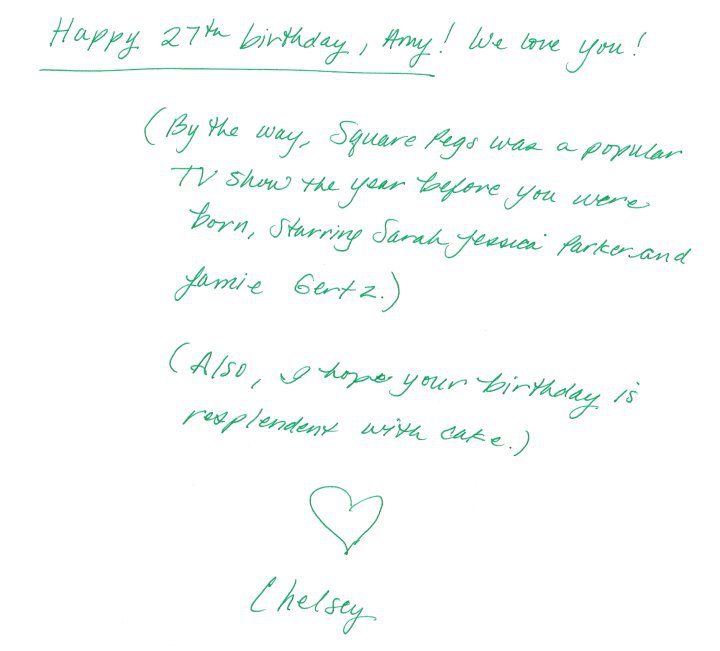 Happy 27th birthday, Amy! We love you!
(By the way, Square Pegs was a popular
TV show the year before you were
born, starring Sarah Jessica Parker and
Jamie Gertz.)
(Also, I hope your birthday is
resplendent with cake.)
Chelsey